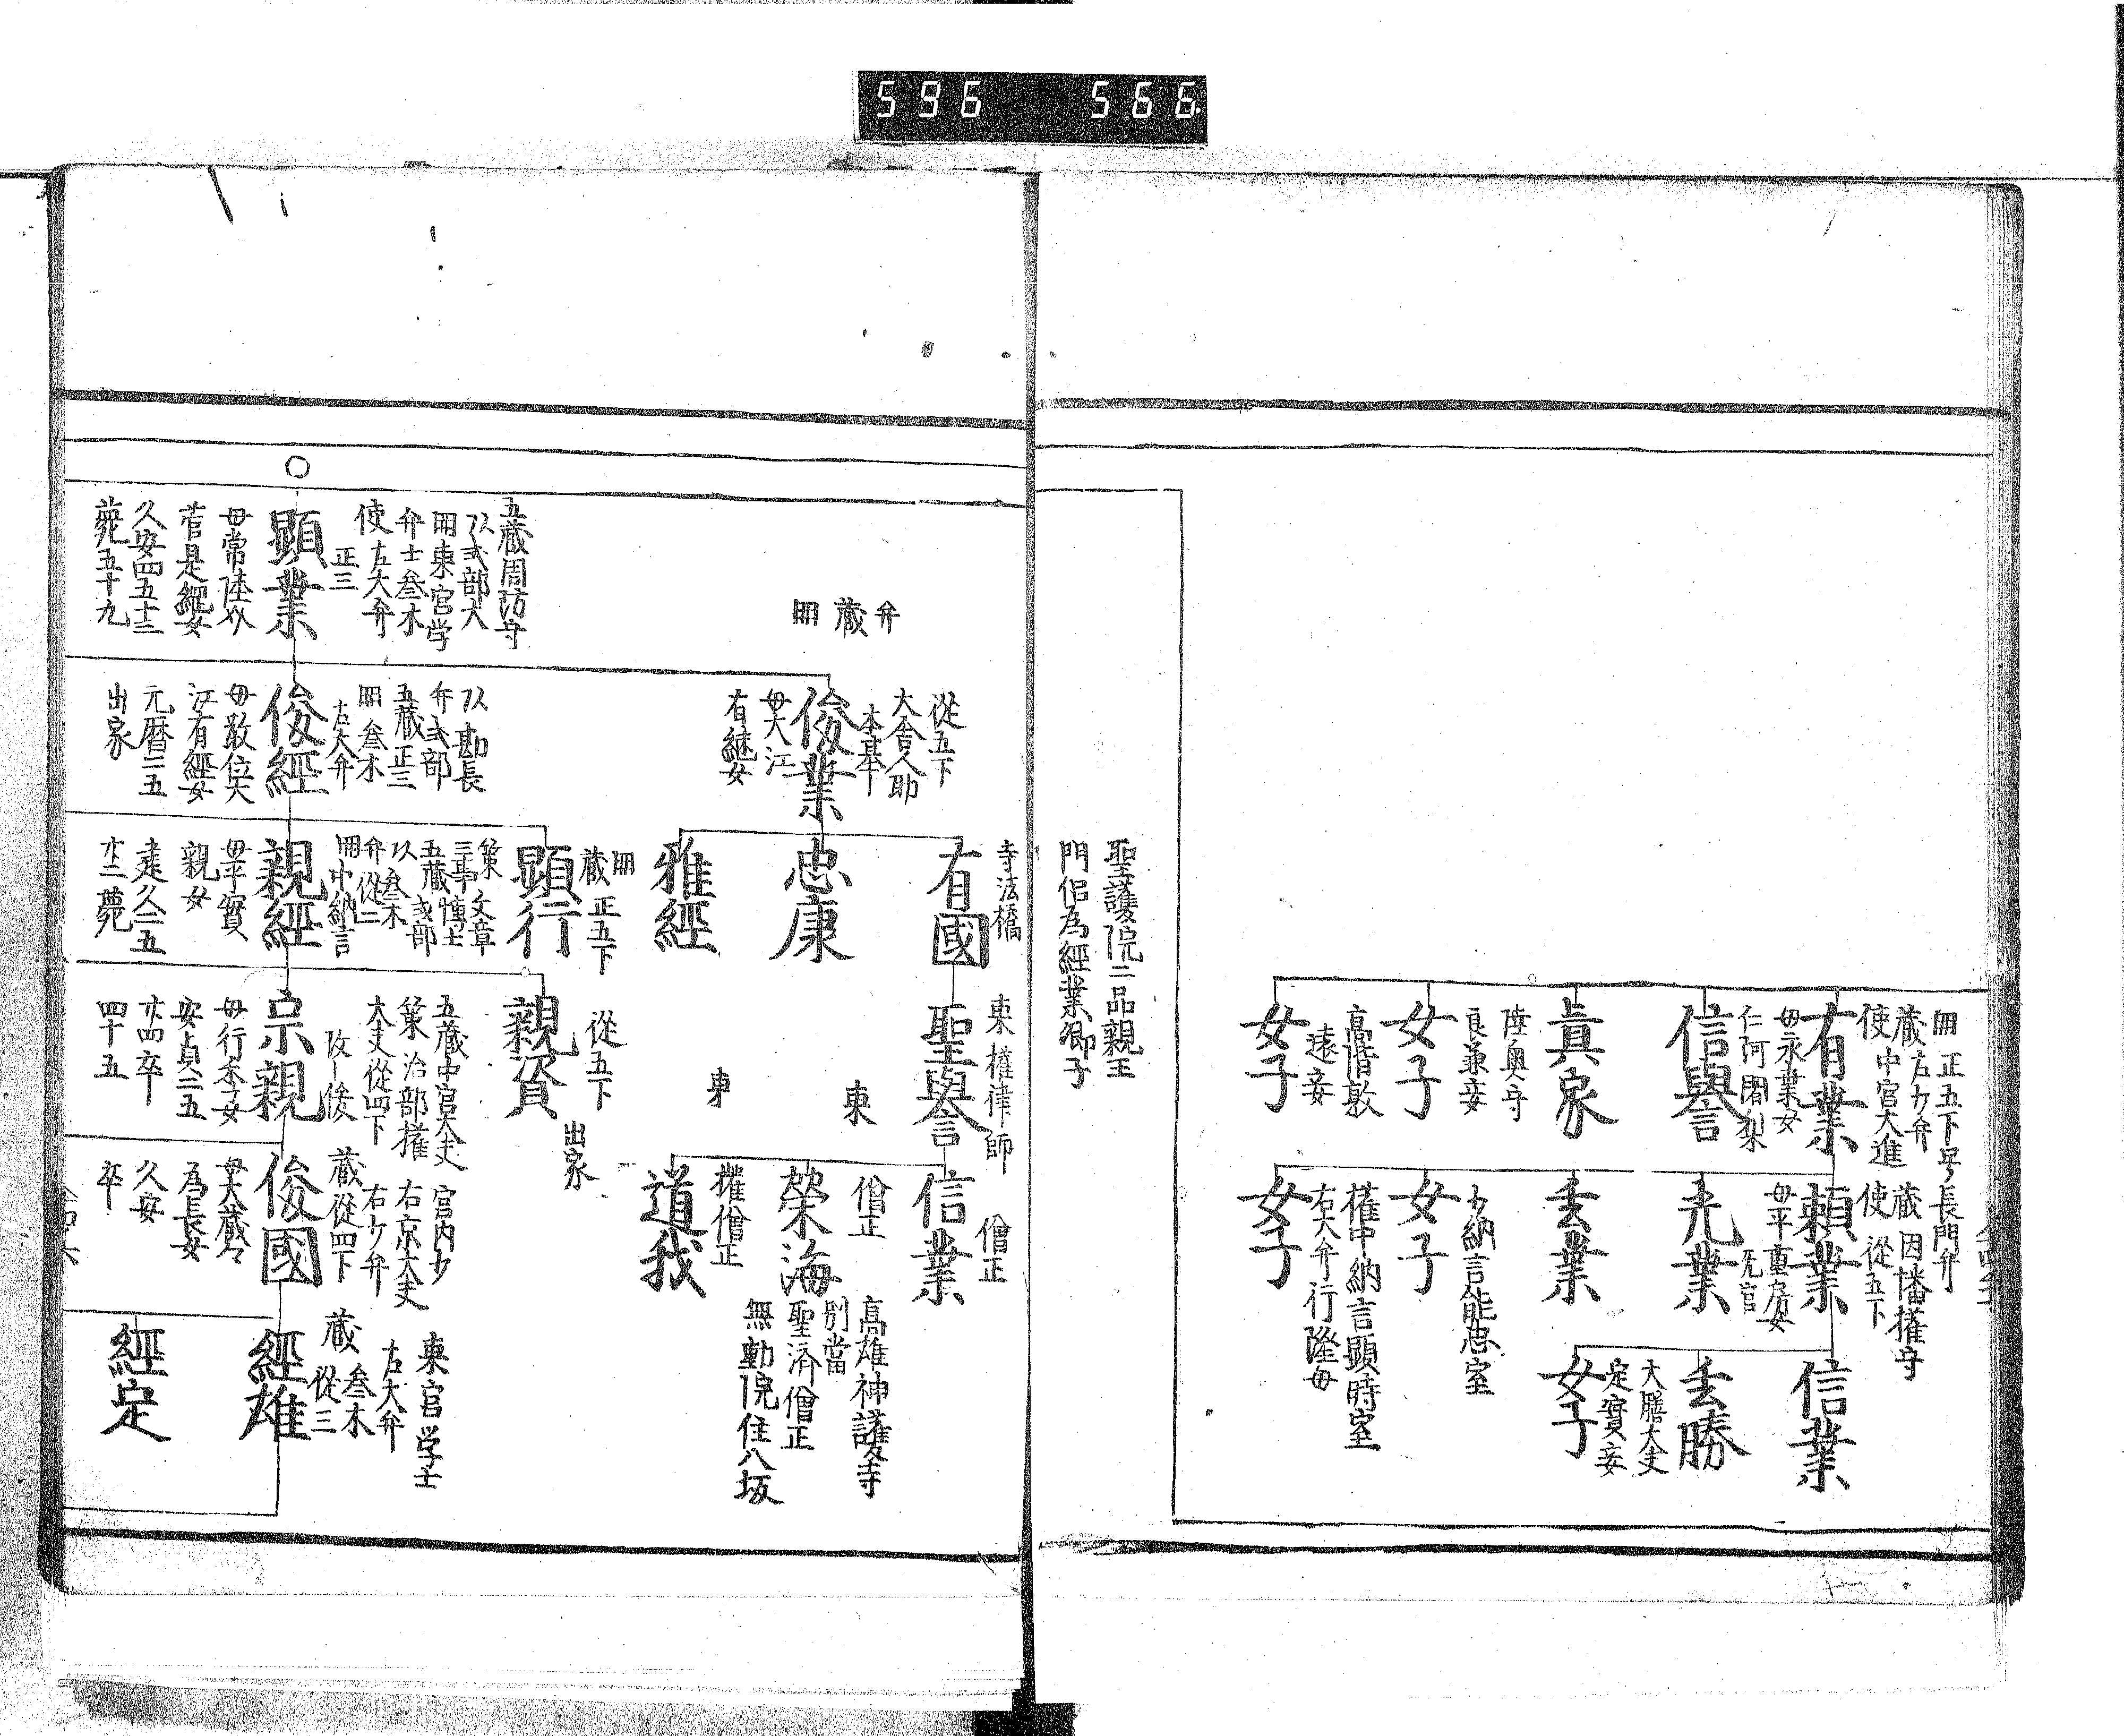 596 566
正五下号長門弁
蔵右少弁
使中宮大進
有業
母永業女
仁阿闍梨
信譽
眞家
陸奥守
良兼妾
女子
高階敦
遠妾
女子
蔵因幡権守
使従五下
頼業
母平重房女
无官
光業
业業
少納言能忠室
女子
権中納言顕時室
右大弁行隆母
女子
信業
大膳大夫
定實妾
女子
聖護院二品親王
門侶為經業卿子
弁
蔵
従五下
大舎人助
本基奉
俊業
母大江
有継女
寺法橋
有國
忠康
雅經
東権律師
聖譽
東
東
僧正
信業
僧正
榮海
権僧正
道我
高雄神護寺
別當
聖済僧正
無動院住八坂
五蔵周防守
以式部大
東宮学
弁士叁木
使左大弁
正三
顕業
母常陸介
菅是綱女
久安四五十三
薨五十九
以勘長
弁式部
五蔵正三
叁木
右大弁
俊經
母散位大
江有經女
元暦二五
出家
蔵正五下
顕行
策文章
三事博士
五蔵式部
以叁木
弁従二
中納言
親經
母平實
親女
建久二五
廿二薨
従五下
出家
親資
五蔵中宮大夫
策治部権
大夫従四下
改俊
宗親
母行孝女
安貞二五
廿四卒
四十五
宮内少
右京大夫
右少弁
蔵従四下
俊國
母大蔵々
為長女
久安
卒
東宮学士
右大弁
叁木
蔵従三
經雄
經定